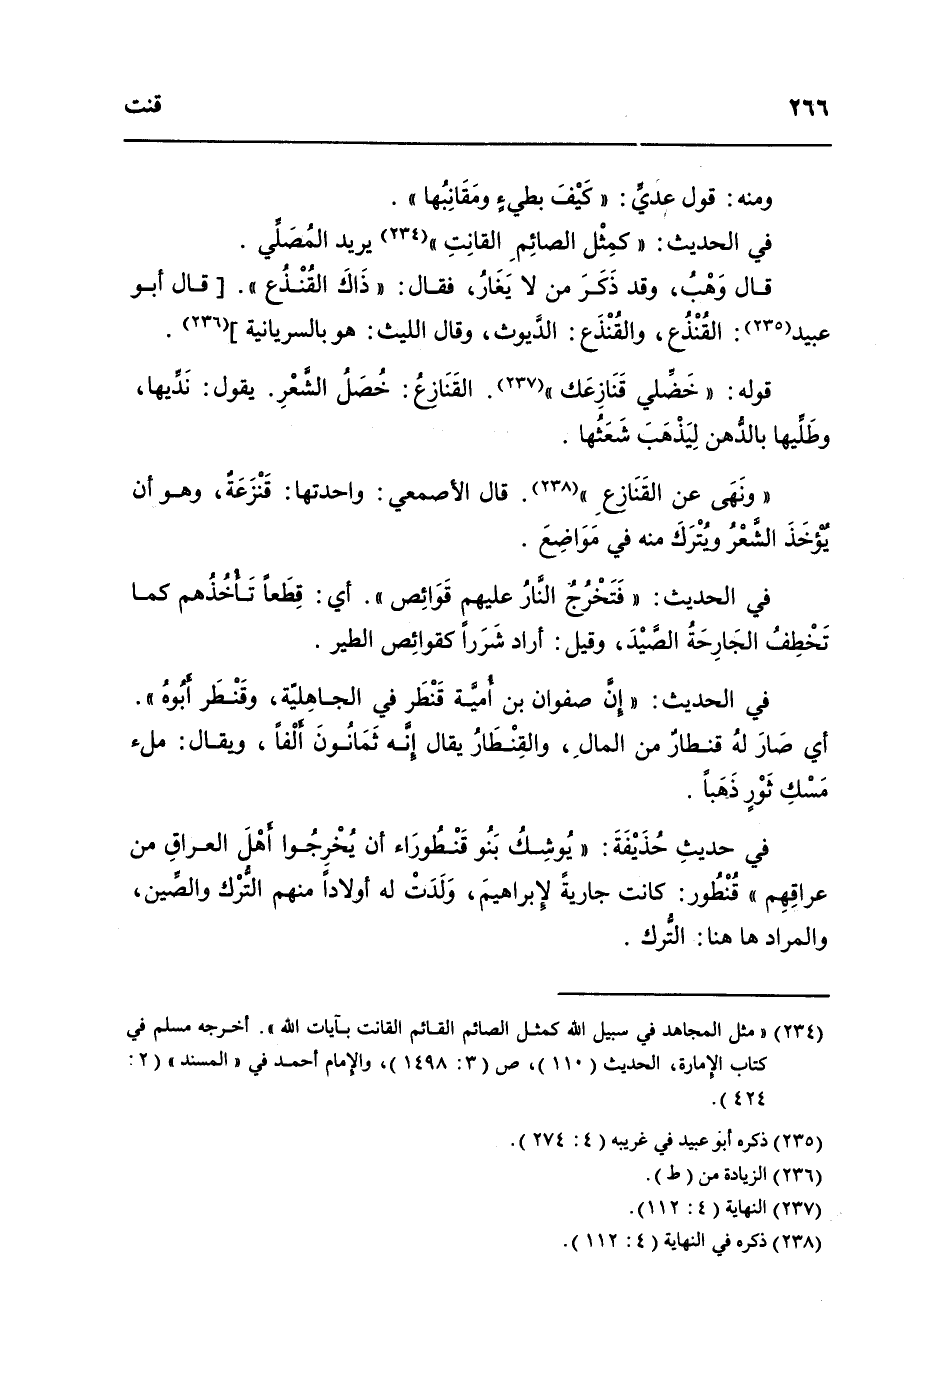 ٢٦٦ قنت
ومنه: قول عِديٍّ: « كَيْفَ بطيءٍ ومَقَانِبُها » .
في الحديث: « كمِثْل الصائِم القانِتِ »(٢٣٤) يريد المُصَلِّي .
قال وَهْبُ، وقد ذَكَرَ من لا يَغَارُ، فقال: « ذَاكَ القُنْذُع ». [ قال أبو
عبيد(٢٣٥): القُنْذُع، والقُنْذَع: الدَّيوث، وقال الليث: هو بالسريانية ](٢٣٦) .
قوله: « خَضِّلي قَنَازِعَك »(٢٣٧). القَنَازِعُ: خُصَلُ الشَّعْرِ. يقول: نَدِّيها،
وطَلِّيها بالدُّهن لِيَذْهَبَ شَعَثُها .
« ونَهَى عن القَنَازِع »(٢٣٨). قال الأصمعي: واحدتها: قَنْزَعَةٌ، وهو أن
يُؤخَذَ الشَّعْرُ ويُتْرَكَ منه في مَوَاضِعَ .
في الحديث: « فَتَخْرُجُ النَّارُ عليهم قَوَائِص ». أي: قِطَعاً تَأخُذُهم كما
تَخْطِفُ الجَارِحَةُ الصَّيْدَ، وقيل: أراد شَرَراً كقوائِص الطير .
في الحديث: « إنَّ صفوان بن أُميَّة قَنْطَر في الجاهِليّة، وقَنْطَر أَبُوهُ ».
أي صَارَ لهُ قنطارٌ من المالِ، والقِنْطَارُ يقال إنَّه ثَمَانُونَ أَلْفاً ، ويقال: ملء
مَسْكِ ثَوْرٍ ذَهَباً .
في حديثِ حُذَيْفَةَ: « يُوشِكُ بَنُو قَنْطُورَاء أن يُخْرِجُوا أَهْلَ العراقِ من
عراقِهِم » قُنْطُور: كانت جاريةً لإبراهيمَ، وَلَدَتْ له أولاداً منهم التُّرْك والصِّين،
والمراد ها هنا: التُّرك .
(٢٣٤) « مثل المجاهد في سبيل الله كمثل الصائم القائم القانت بآيات الله ». أخرجه مسلم في
كتاب الإمارة، الحديث ( ١١٠ )، ص ( ٣: ١٤٩٨ )، والإمام أحمد في « المسند » ( ٢:
٤٢٤ ).
(٢٣٥) ذكره أبو عبيد في غريبه ( ٤: ٢٧٤ ).
(٢٣٦) الزيادة من ( ط ).
(٢٣٧) النهاية ( ٤: ١١٢).
(٢٣٨) ذكره في النهاية ( ٤: ١١٢ ).